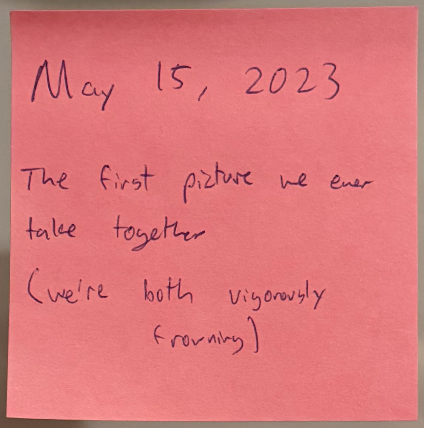 May 15, 2023
The first picture we ever
take together
(we're both vigorously
frowning)